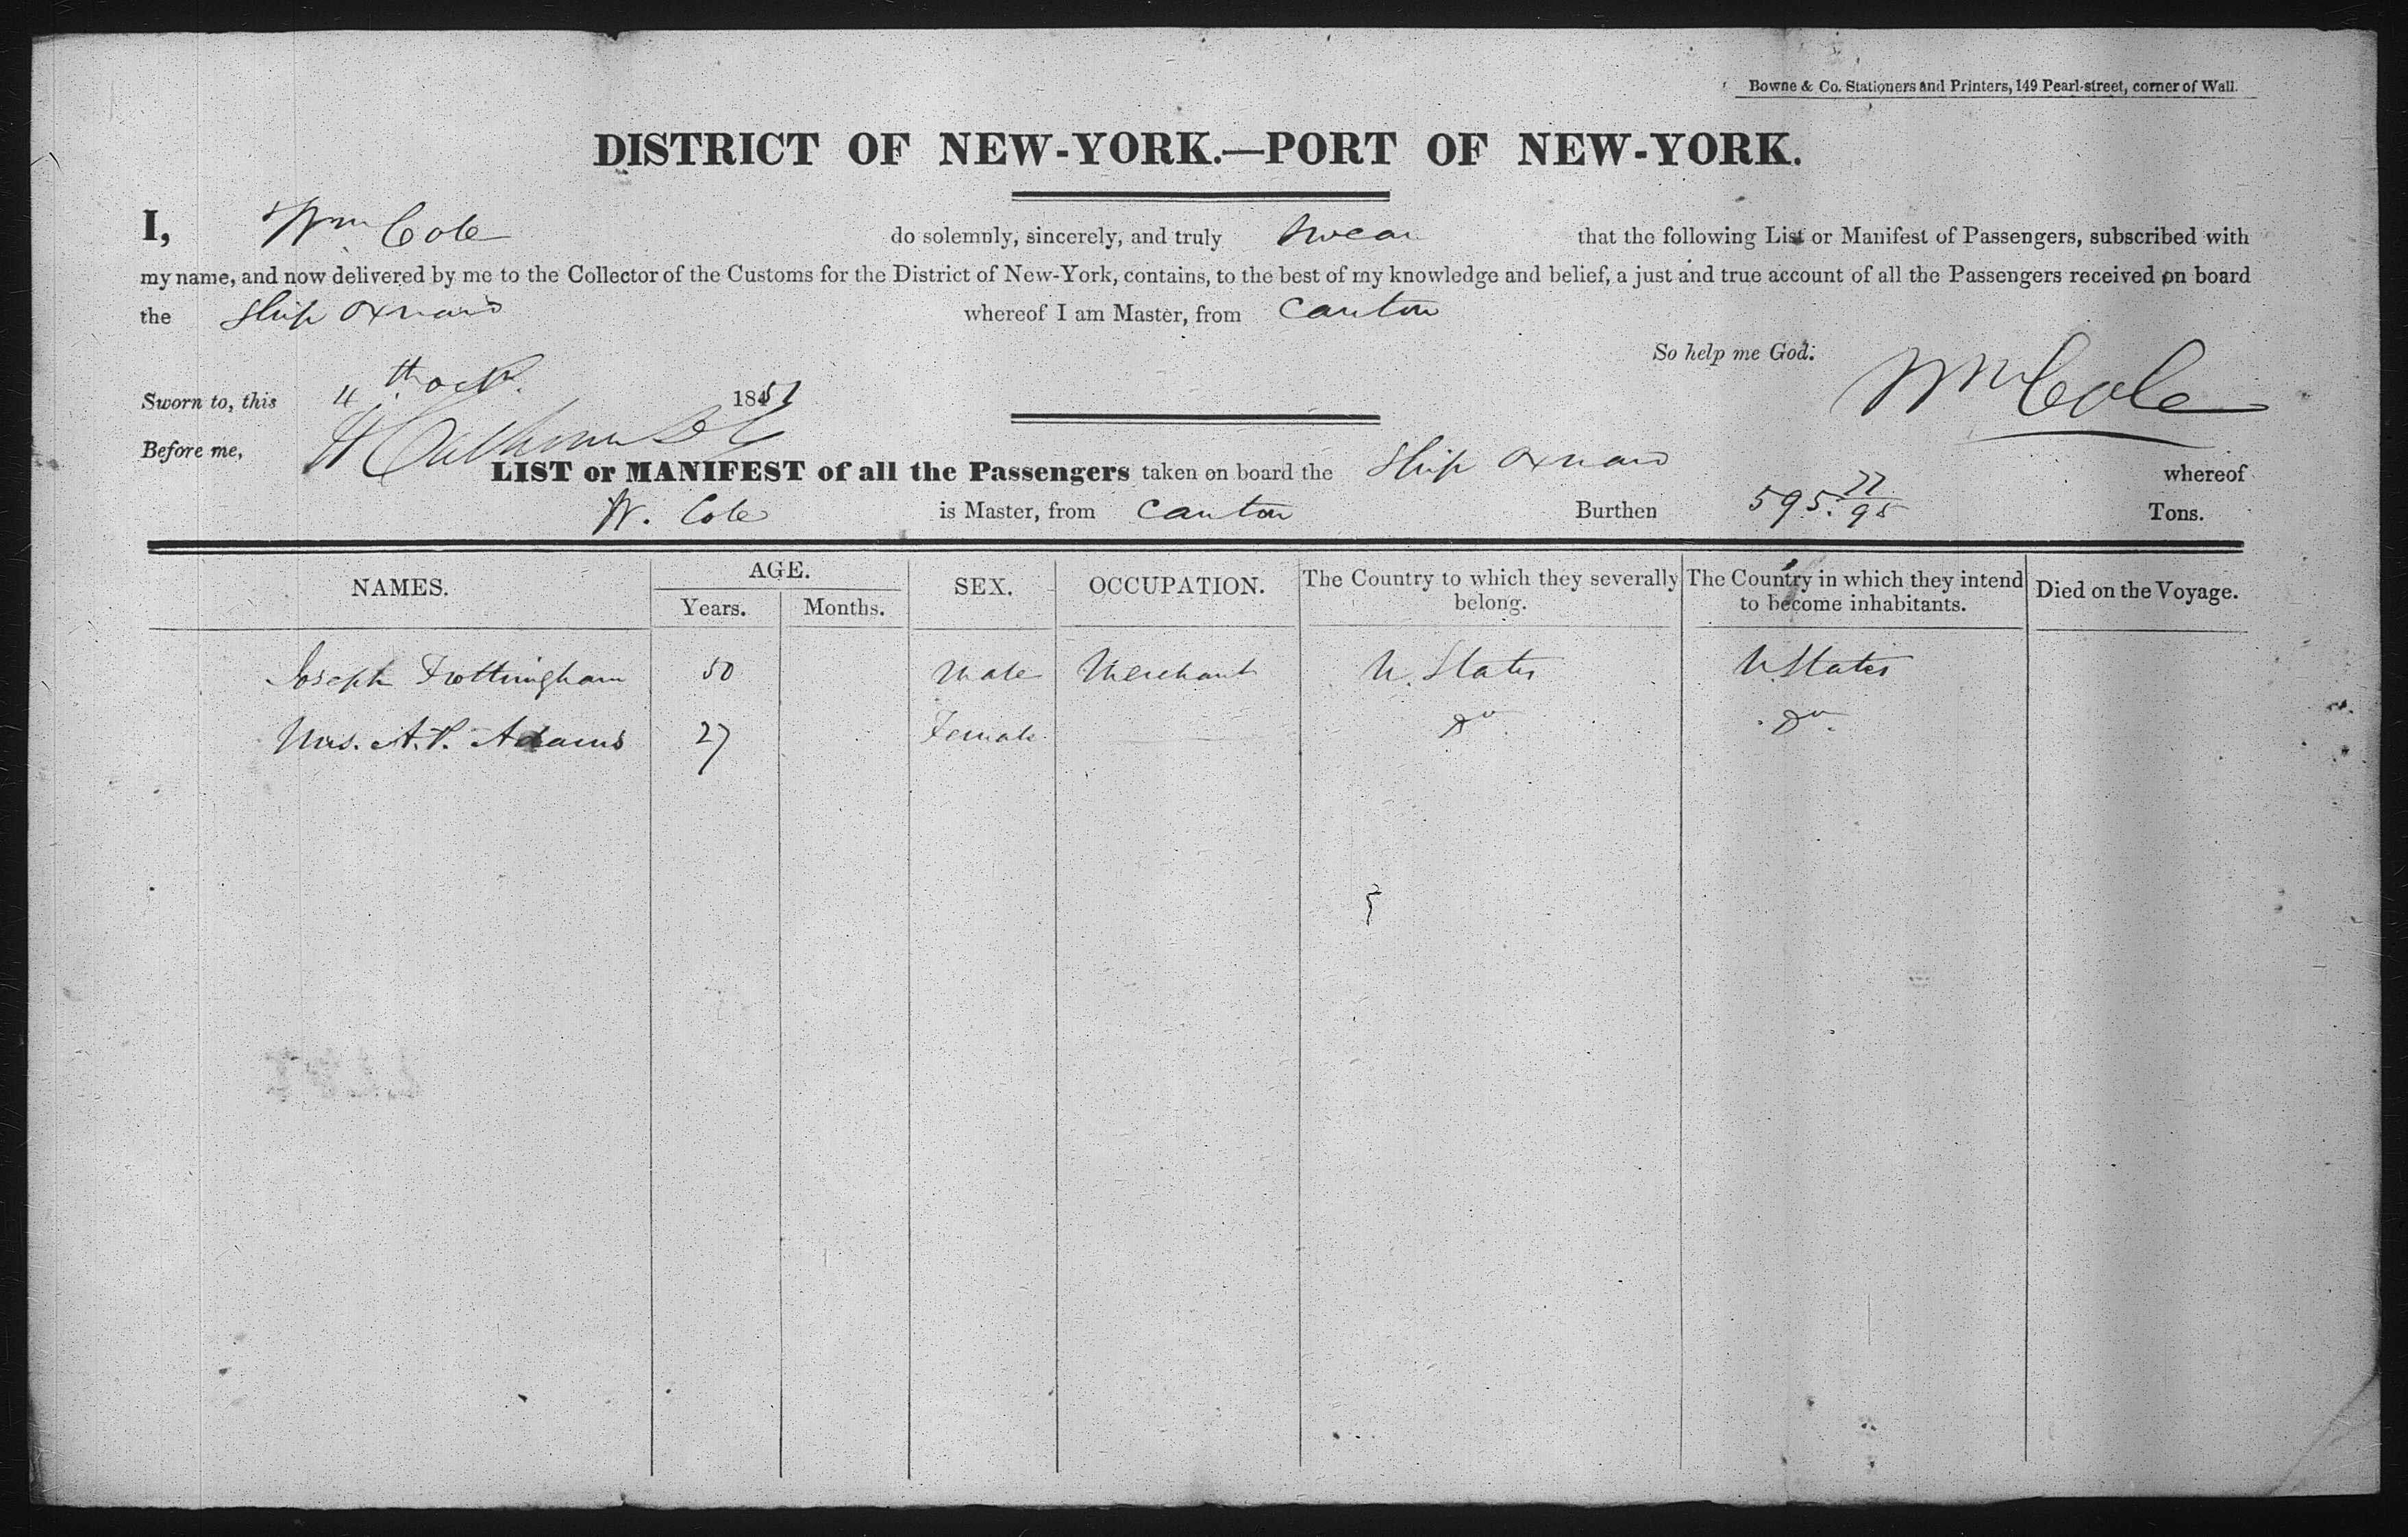 Bowne & Co. Stationers and Printers, 149 Pearl-street, corner of Wall.
DISTRICT OF NEW-YORK.—PORT OF NEW-YORK.
I, Wm Cole do solemnly, sincerely, and truly swear that the following List or Manifest of Passengers, subscribed with
my name, and now delivered by me to the Collector of the Customs for the District of New-York, contains, to the best of my knowledge and belief, a just and true account of all the Passengers received on board
the Ship Oxnard whereof I am Master, from Canton
So help me God. Wm Cole
Sworn to, this 4th Oct. 1851
Before me,
LIST or MANIFEST of all the Passengers taken on board the Ship Oxnard whereof
W. Cole is Master, from Canton Burthen 595. 77/95 Tons.
NAMES. AGE. SEX. OCCUPATION. The Country to which they severally belong. The Country in which they intend to become inhabitants. Died on the Voyage.
Years. Months.
Joseph Frottingham 50 Male Merchant U. States U. States
Mrs. A. P. Adams 27 Female Do Do.